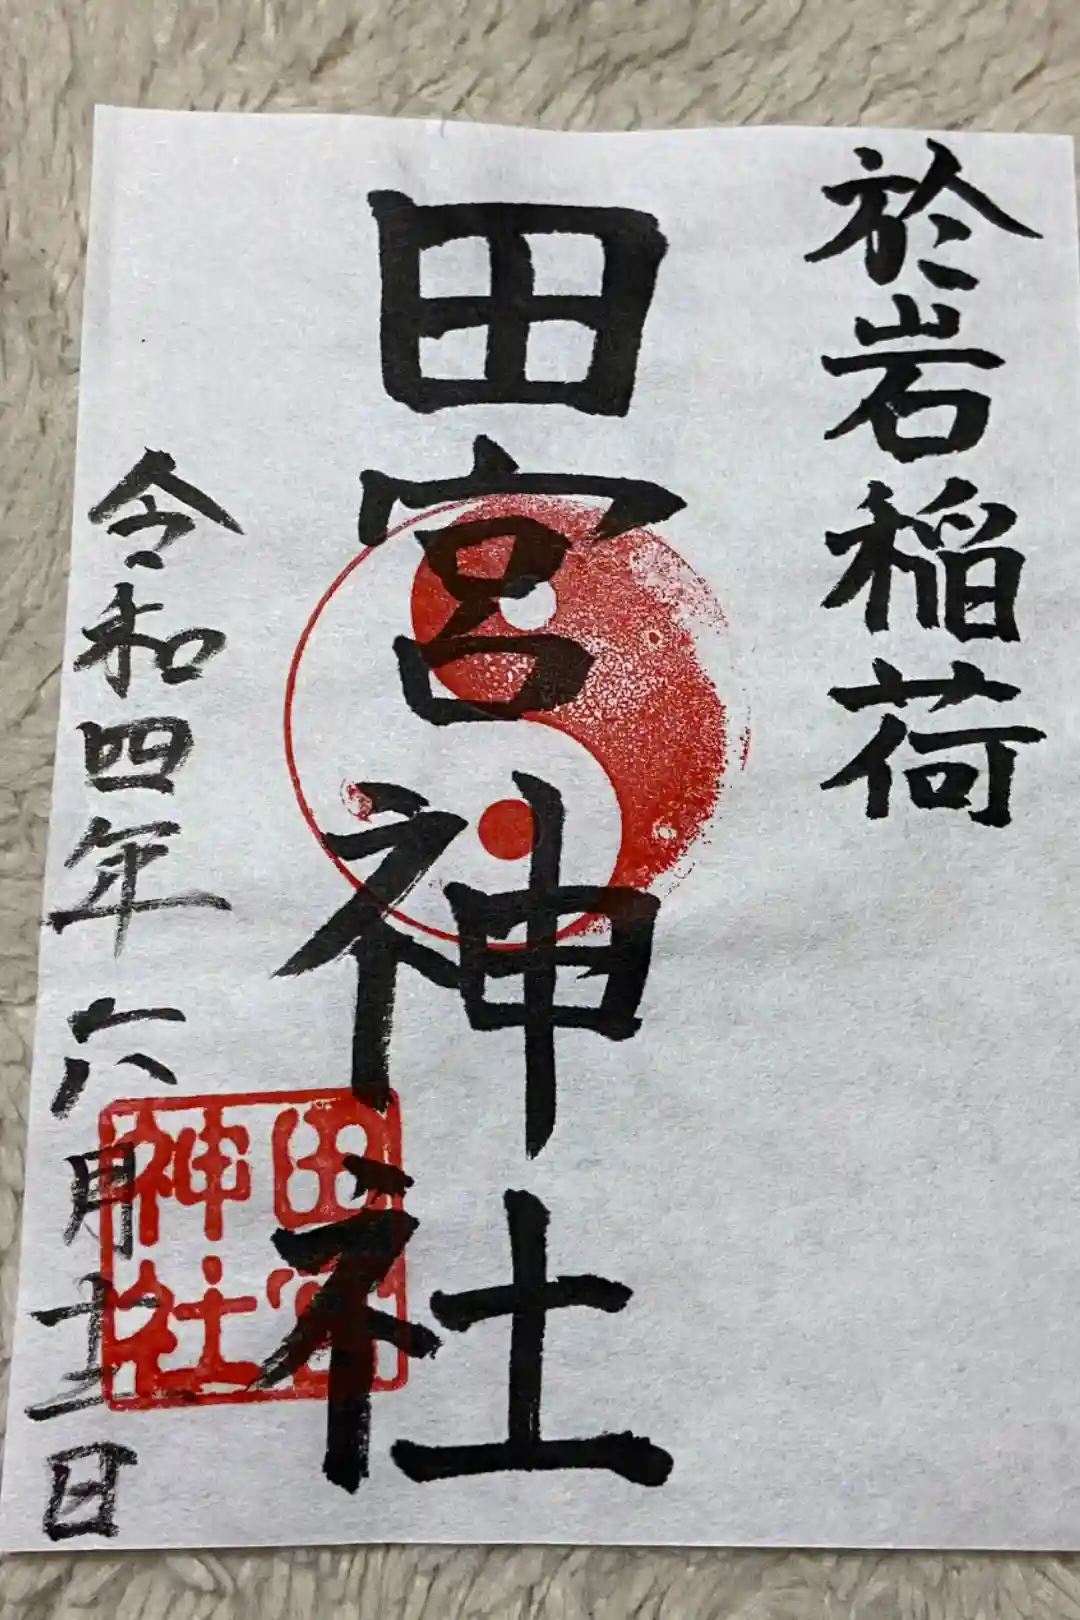 於岩稲荷
田宮神社
令和四年六月十日
田宮
神社